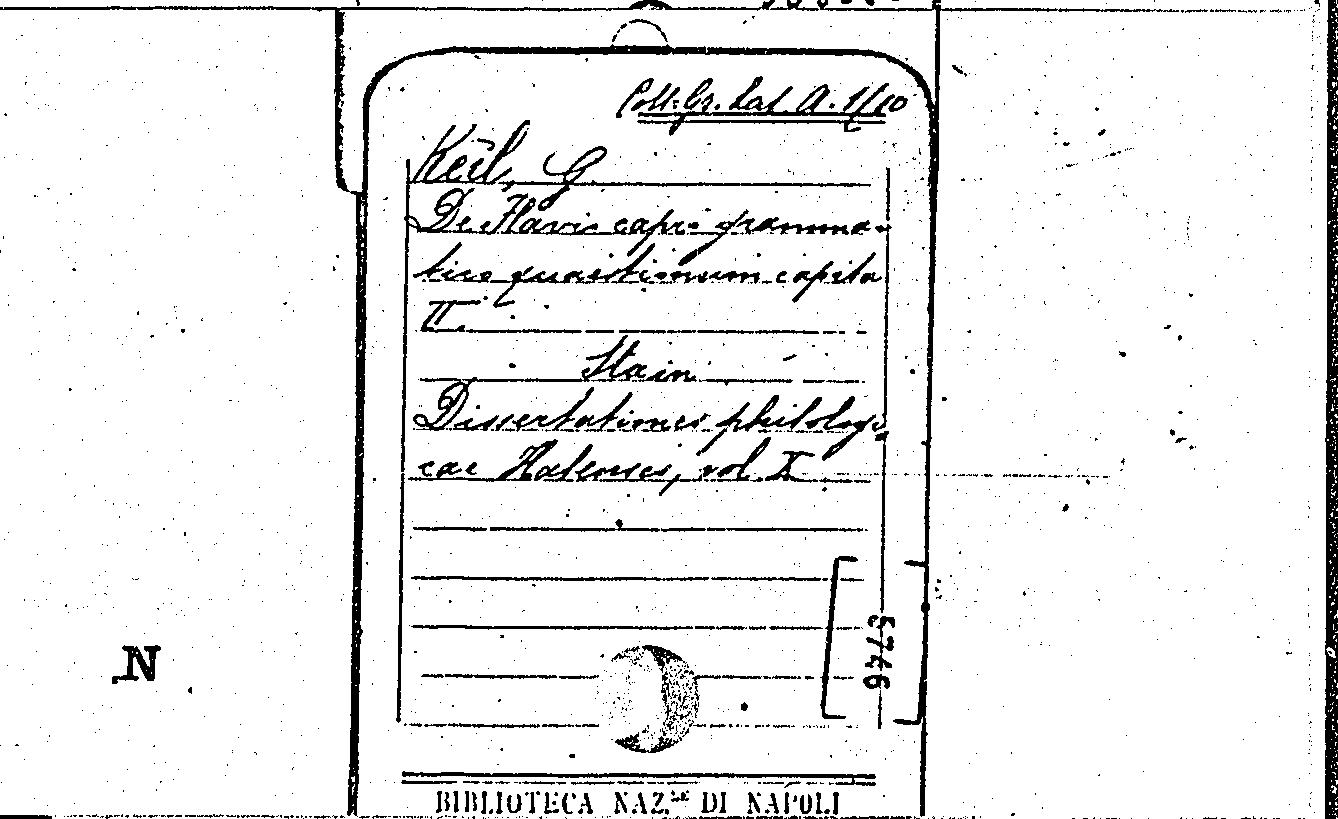 Coll. Gr. Lat A. 1/10
Keil, G.
De Flavio capro gramma-
tico quaestionum capita
II.
Sta in
Dissertationes philologi-
cae Halenses, vol. X
5746
N
BIBLIOTECA NAZ.LE DI NAPOLI